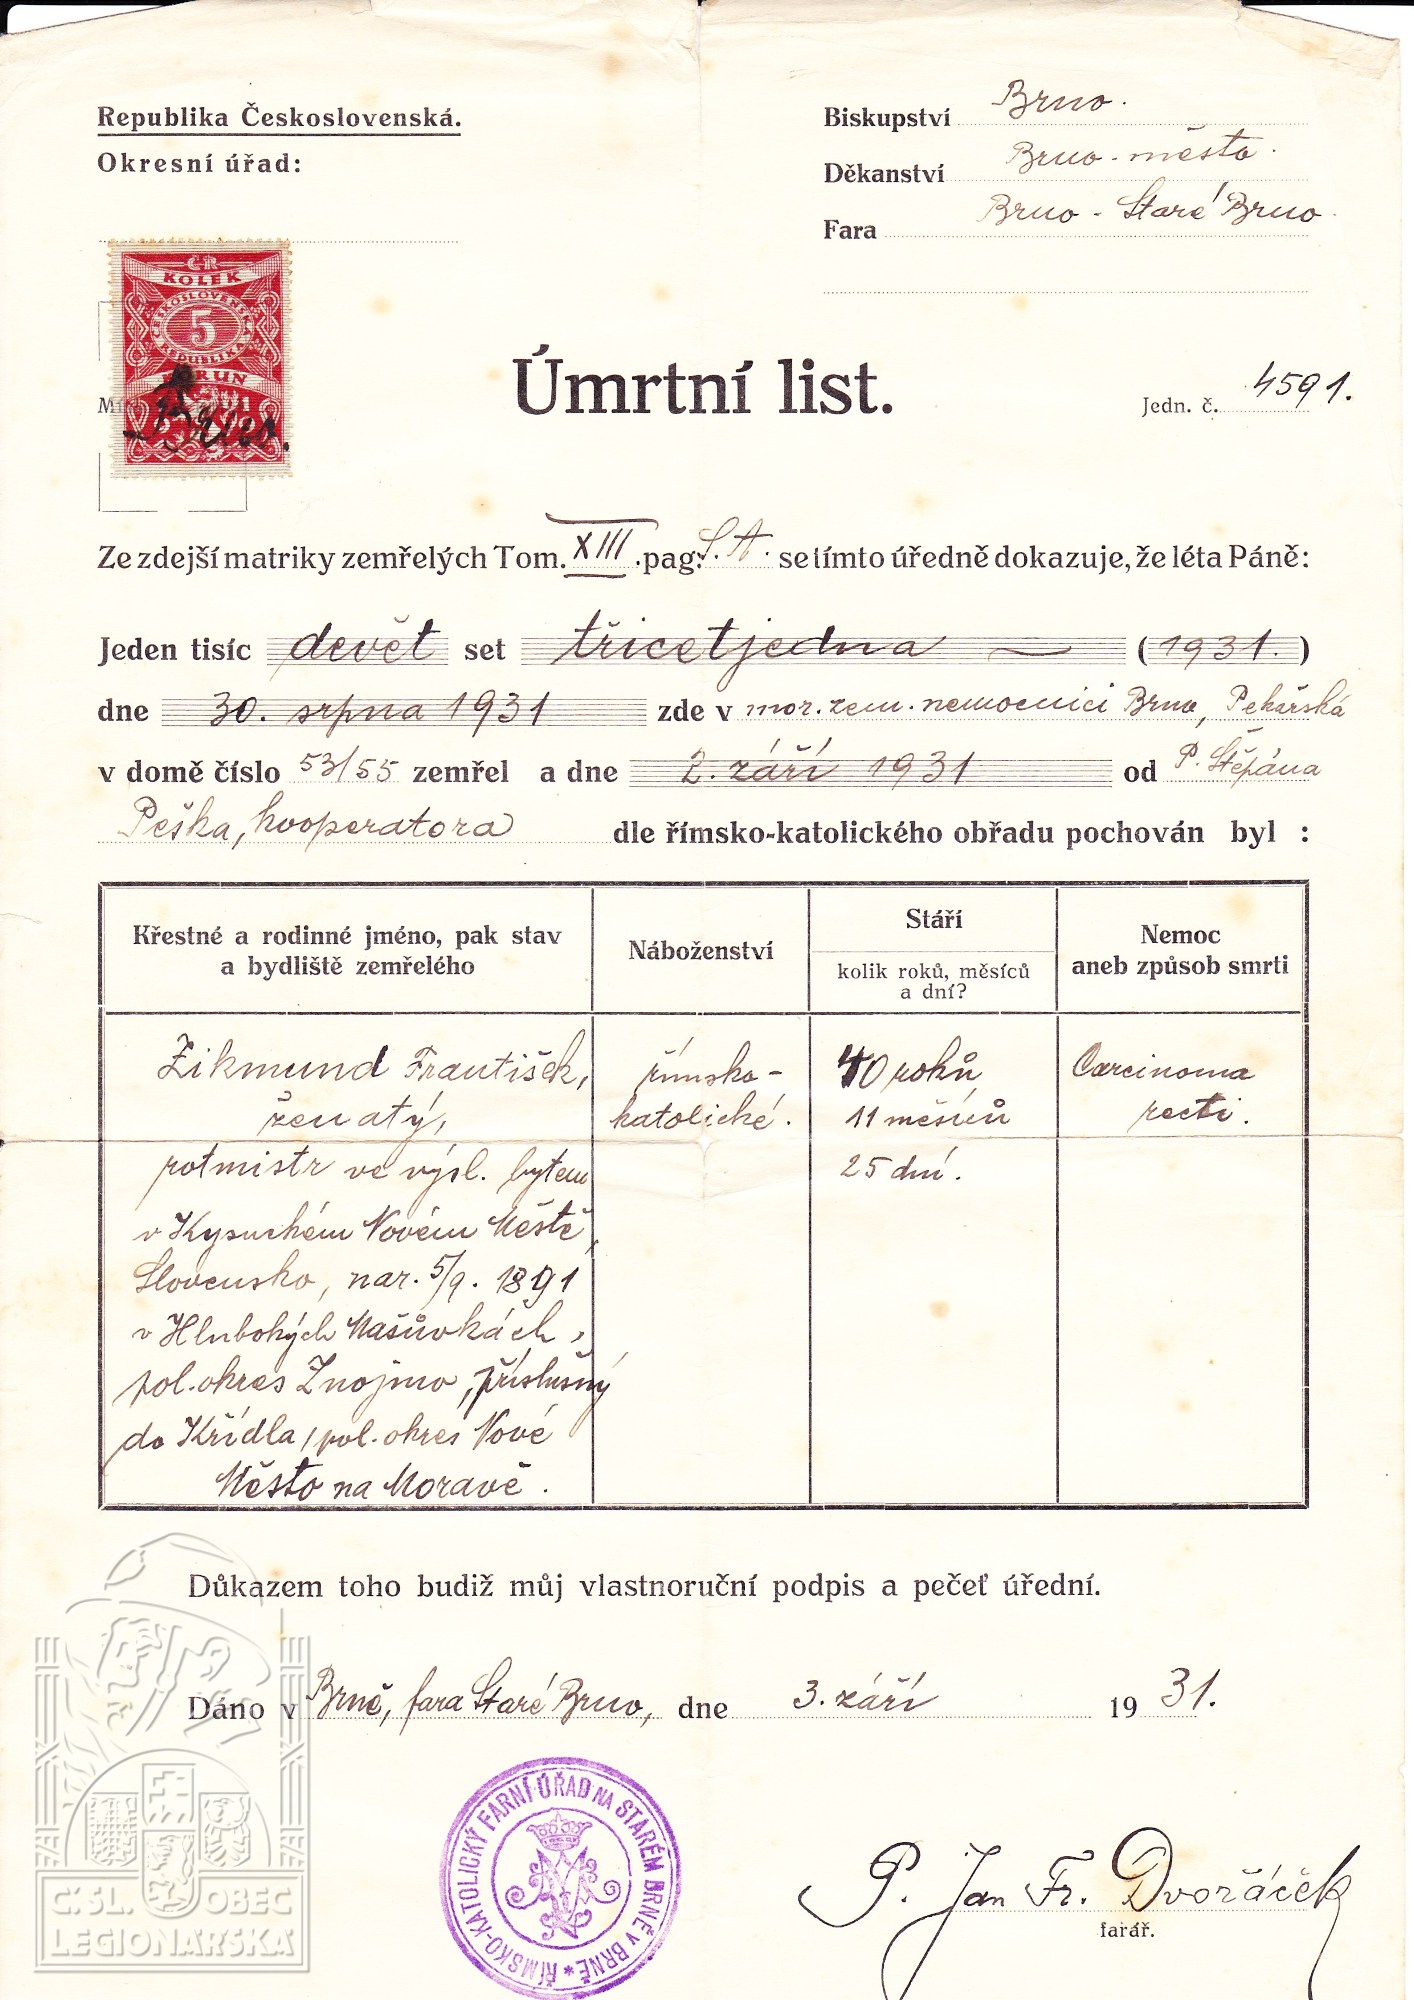 Republika Československá.
Okresní úřad:
Biskupství Brno.
Děkanství Brno-město.
Fara Brno - Staré Brno.
ČR
KOLEK
ČESKOSLOVENSKÁ
5
REPUBLIKA
KORUN
Úmrtní list.
Jedn. č. 4591.
Ze zdejší matriky zemřelých Tom. XIII. pag: S.A. se tímto úředně dokazuje, že léta Páně:
Jeden tisíc devět set třicetjedna (1931.)
dne 30. srpna 1931 zde v mor. zem. nemocnici Brno, Pekařská
v domě číslo 53/55 zemřel a dne 2. září 1931 od P. Štěpána
Peška, kooperatora dle římsko-katolického obřadu pochován byl :
Křestné a rodinné jméno, pak stav
a bydliště zemřelého
Náboženství
Stáří
kolik roků, měsíců
a dní?
Nemoc
aneb způsob smrti
Zikmund František,
ženatý,
rotmistr ve výsl. bytem
v Kysuckém Novém Městě,
Slovensko, nar. 5/9. 1891
v Hlubokých Mašůvkách,
pol. okres Znojmo, příslušný
do Křídla, pol. okres Nové
Město na Moravě.
římsko-
katolické.
40 roků
11 měsíců
25 dní.
Carcinoma
recti.
Důkazem toho budiž můj vlastnoruční podpis a pečeť úřední.
Dáno v Brně, fara Staré Brno, dne 3. září 1931.
ŘÍMSKO-KATOLICKÝ FARNÍ ÚŘAD NA STARÉM BRNĚ V BRNĚ *
P. Jan Fr. Dvořáček
farář.
Č.SL. OBEC
LEGIONÁŘSKÁ